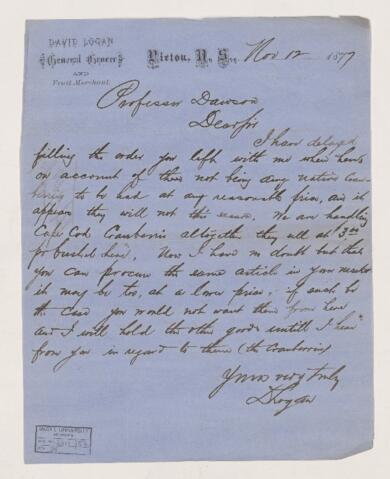 DAVID LOGAN
General Grocer
AND
Fruit Merchant.
Pictou, N. S., Nov 12 1877
Professor Dawson
Dear Sir
I have delayed
filling the order you left with me when here
on account of there not being any native Cran-
berries to be had at any reasonable price, and it
appears they will not this season. We are handling
Cape Cod Cranberris altogether they sell at 3.00
per bushel here. Now I have no doubt but that
you can procure the same article in your market
it may be too, at a lower price. if such be
the case you would not want them from here
and I will hold the other goods untill I hear
from you in regard to them (the Cranberries)
Yours very truly
D Logan
McGILL UNIVERSITY
ARCHIVES